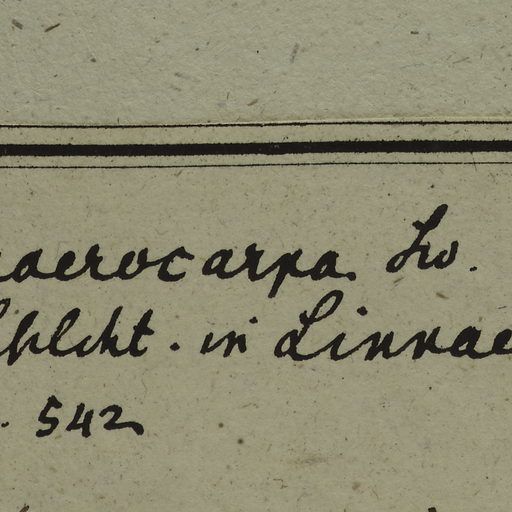 macrocarpa. Lw.
Schlcht. in Linnae
. 542